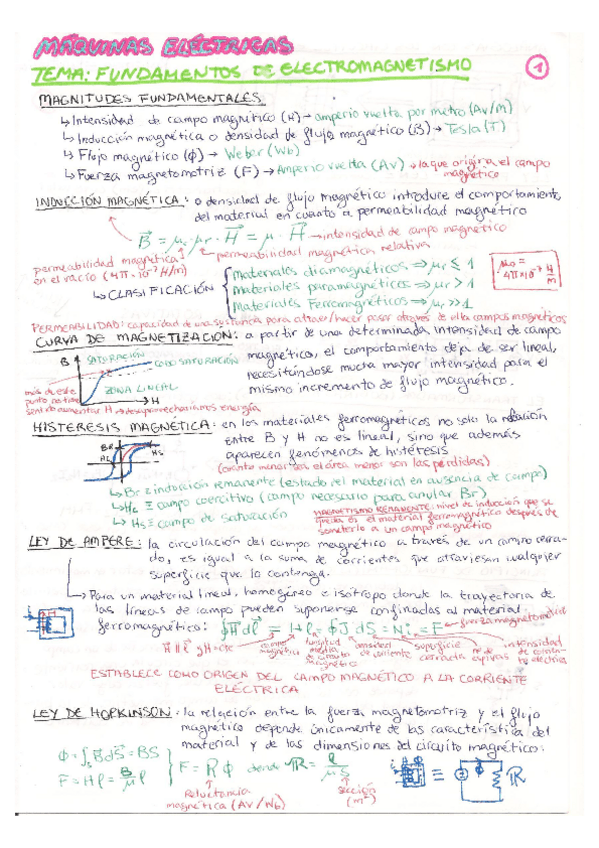 MÁQUINAS ELÉCTRICAS
TEMA: FUNDAMENTOS DE ELECTROMAGNETISMO
1
MAGNITUDES FUNDAMENTALES
↳ Intensidad de campo magnético (H) → amperio vuelta por metro (Av/m)
↳ Inducción magnética o densidad de flujo magnético (B) → Tesla (T)
↳ Flujo magnético (ϕ) → Weber (Wb)
↳ Fuerza magnetomotriz (F) → Amperio vuelta (Av) → la que origina el campo
magnético
INDUCCIÓN MAGNÉTICA: o densidad de flujo magnético introduce el comportamiento
del material en cuanto a permeabilidad magnético
B = μ₀ · μr · H = μ · H → intensidad de campo magnético
permeabilidad magnética relativa
permeabilidad magnética
en el vacío (4π · 10⁻⁷ H/m)
↳ CLASIFICACIÓN
Materiales diamagnéticos ⇒ μr ≤ 1
Materiales paramagnéticos ⇒ μr > 1
Materiales Ferromagnéticos ⇒ μr >> 1
μ₀ = 4π×10⁻⁷ H/m
PERMEABILIDAD: capacidad de una sustancia para atraer/hacer pasar através de ella campos magnéticos
CURVA DE MAGNETIZACIÓN: a partir de una determinada intensidad de campo
magnético, el comportamiento deja de ser lineal,
necesitándose mucha mayor intensidad para el
mismo incremento de flujo magnético.
B
SATURACIÓN
CODO SATURACIÓN
ZONA LINEAL
H
más de este
punto no tiene
sentido aumentar H → desaprovechariamos energía
HISTERESIS MAGNÉTICA: en los materiales ferromagnéticos no solo la relación
entre B y H no es lineal, sino que además
aparecen fenómenos de histéresis
(cuánto menor sea el área menor son las pérdidas)
Br
Hc
Hs
↳ Br ≡ inducción remanente (estado del material en ausencia de campo)
↳ Hc ≡ campo coercitivo (campo necesario para anular Br)
↳ Hs ≡ campo de saturación
MAGNETISMO REMANENTE: nivel de inducción que se
queda en el material ferromagnético después de
someterlo a un campo magnético
LEY DE AMPERE: la circulación del campo magnético a través de un campo cerra-
do, es igual a la suma de corrientes que atraviesan cualquier
superficie que lo contenga.
↳ Para un material lineal, homogéneo e isótropo donde la trayectoria de
las líneas de campo pueden suponerse confinadas al material
ferromagnético: ∮H dl = H · lm = ∮J dS = N i = F → fuerza magnetomotriz
H ∥ l y H = cte
campo magnético
longitud media de circuito magnético
densidad de corriente
superficie
nº de espiras
intensidad de corriente eléctrica
ESTABLECE COMO ORIGEN DEL CAMPO MAGNÉTICO A LA CORRIENTE
ELÉCTRICA
LEY DE HOPKINSON: la relación entre la fuerza magnetomotriz y el flujo
magnético depende únicamente de las características del
material y de las dimensiones del circuito magnético:
ϕ = ∫ₛ B dS = BS
F = H l = B/μ l
F = R ϕ donde R = l/μS
Reluctancia
magnética (Av/Wb)
sección
(m²)